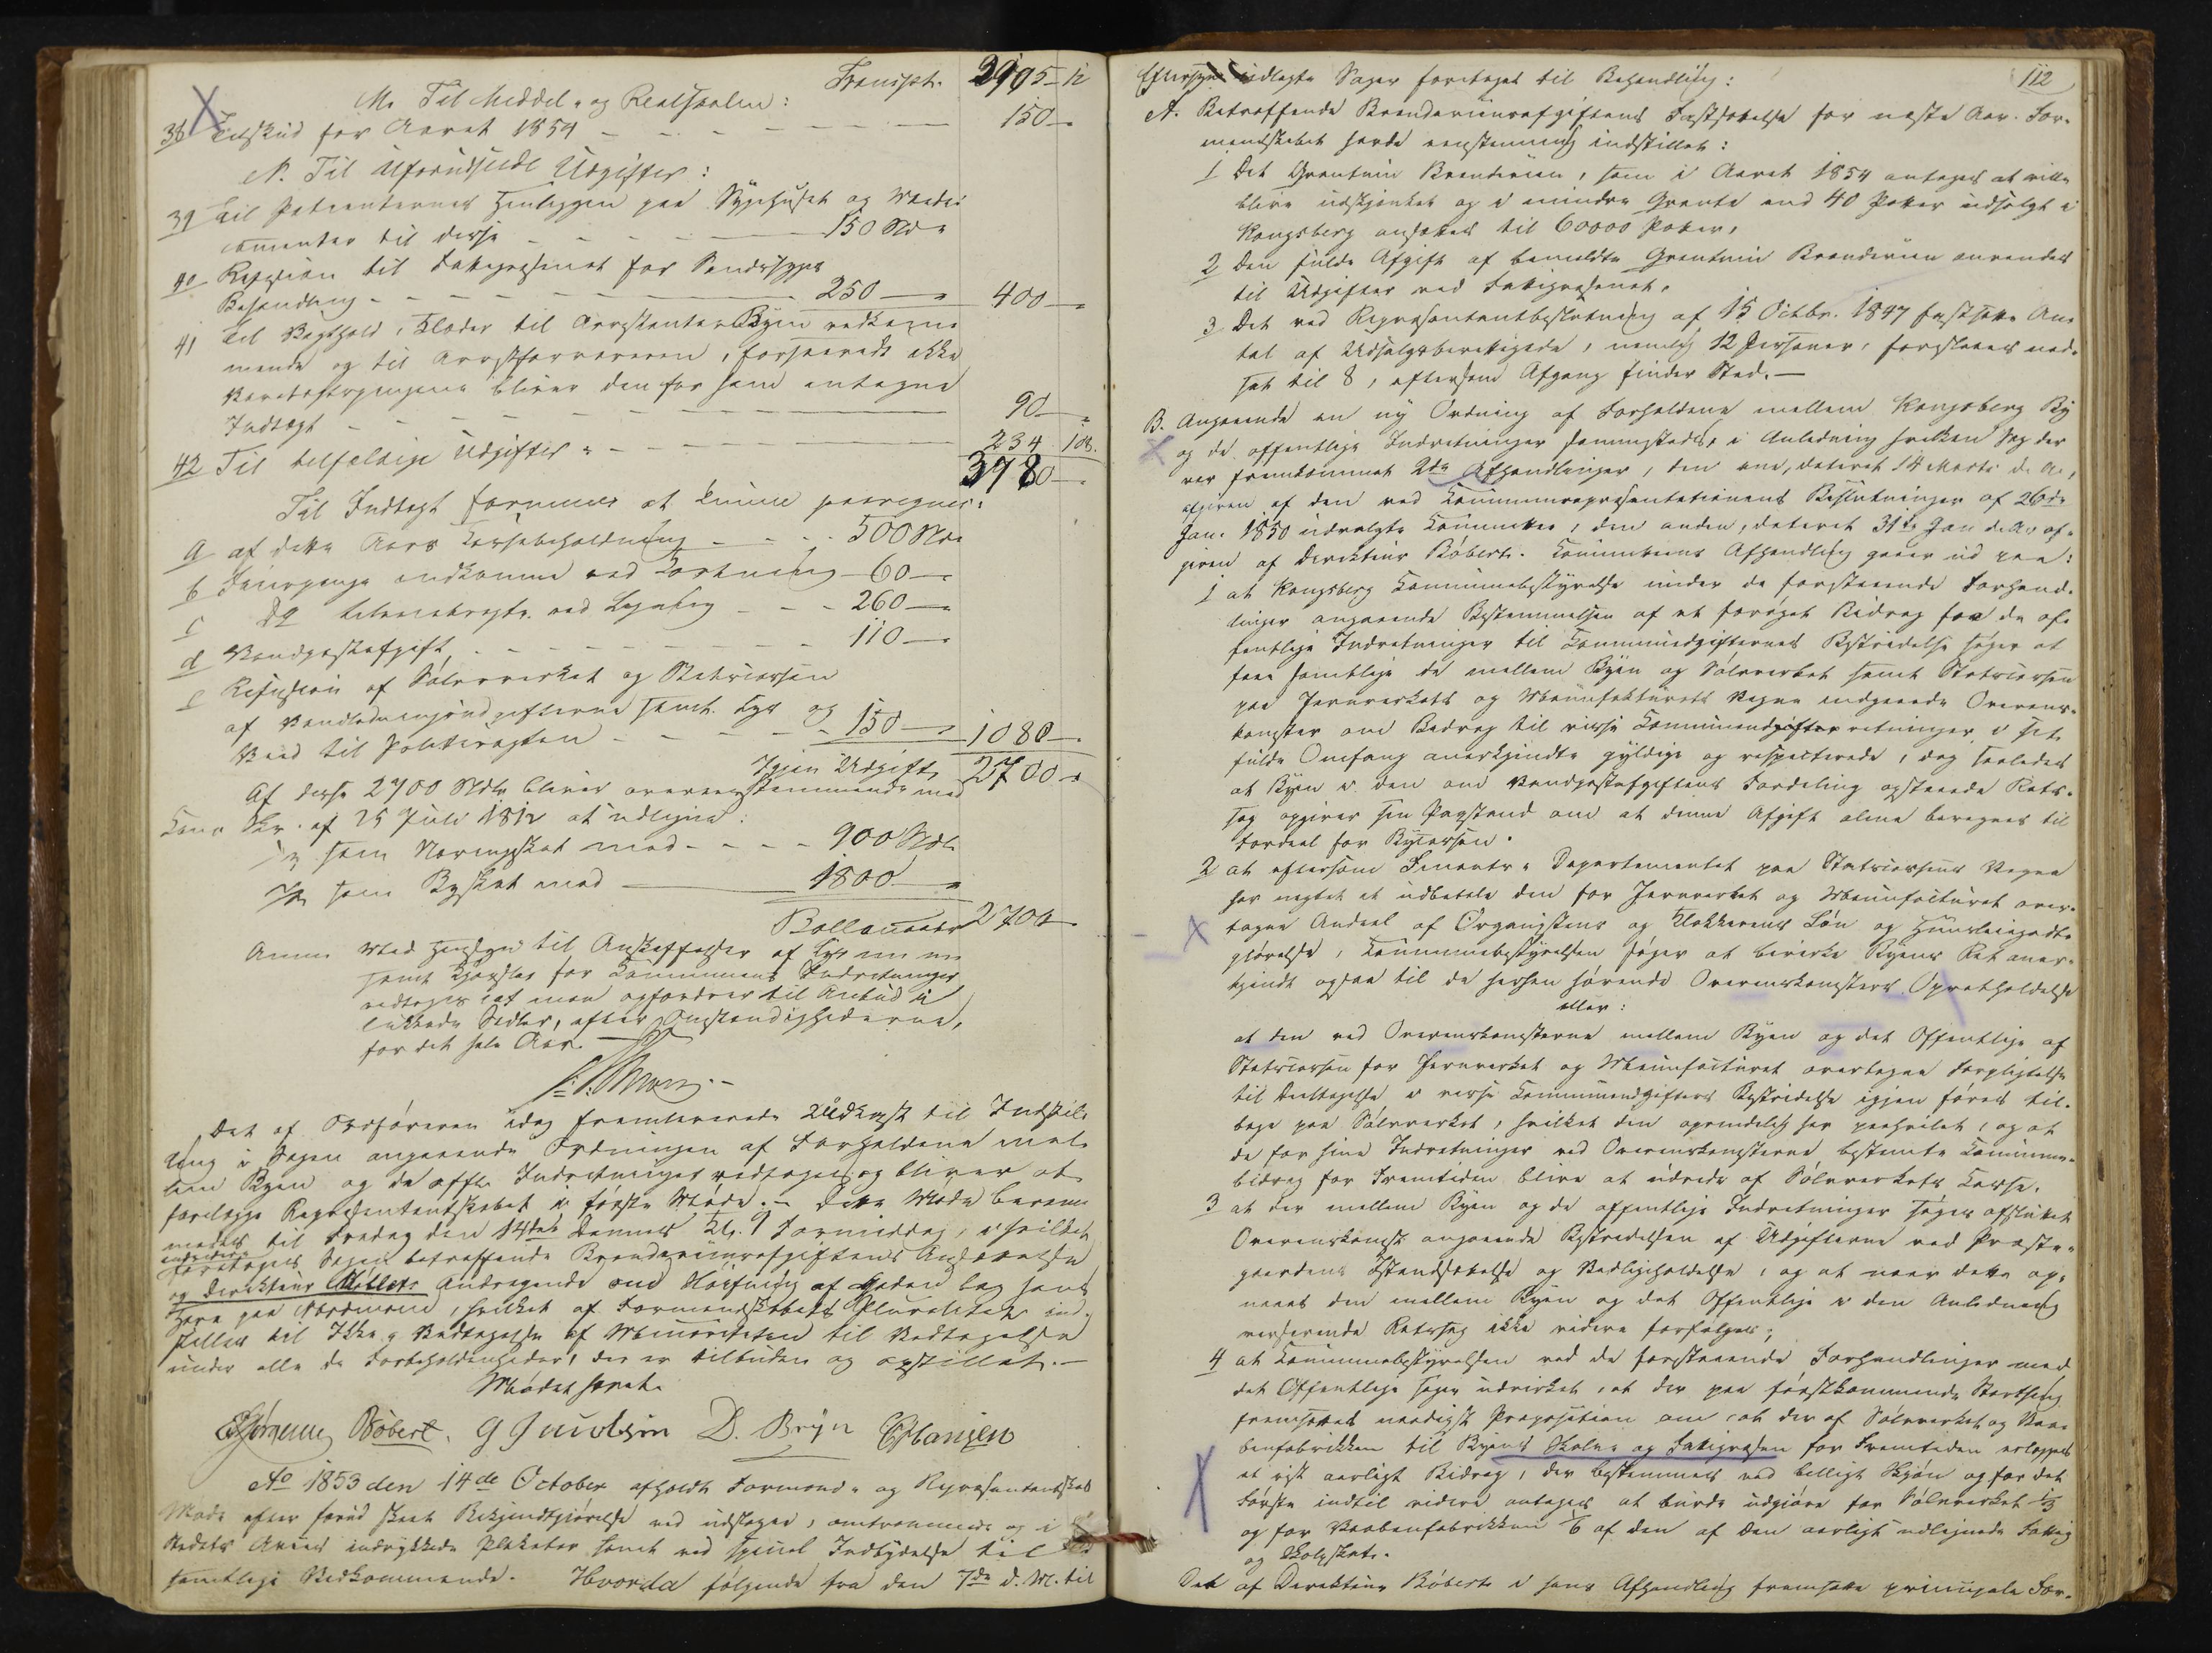 Transpt. 2905 - 12
M. Til Middel- og Realskolen:
38 Tilskud for Aaret 1854 - - - 150 -
N. Til Uforudseede Udgifter:
39 Til Patienternes Henliggen paa Sygehuset og Medi-
camenter til disse - - - 150 Spd.
40 Refusion til Fattigvæsenet for Sindssyges
Behandling - - - 250 - 400 -
41 Til Vagthold, Klæder til Arrestanter Byen vedkom-
mende og til Arrestforvareren, forsaavidt ikke
bliver den for ham antagne
Indtægt - - - 90 -
42 Til tilfældige Udgifter - - - 234. 108.
3780 -
Til Indtægt formenes at kunne paaregnes:
a af dette Aars Kassebeholdning - - - 500 Spd.
b Indkomme ved - 60 -
c do ved - - - 260 -
d Vandpostafgift, - - - 110 -
e Refusion af Sølvverket og Statscassen
af samt Lys og
Veed til Politivagten - - - 150 - 1080 -
Igjen Udgift 2700 -
Af disse 2700 Spdlr bliver overeensstemmende med
Canc. Skr. af 25 Juli 1812 at udligne:
1/3 som Næringsskat med - - - - 900 Spdl.
2/3 som Byskat med - 1800 -
Ballancerer 2700
Anm. Med Hensyn til Anskaffelser af Lys
samt for Communens Indretninger
vedtoges, at man opfordrer til Anbud i
lukkede Sedler, efter Omstændighederne,
for det hele Aar. -
Det af Ordføreren idag fremleverede Udkast til Indstil-
ling i Sagen angaaende Ordningen af Forholdene mel-
lem Byen og de offtl. Indretninger vedtoges og bliver at
forelægge Repræsentantskabet i første Møde. - Dette Møde beram-
medes til Fredag den 14de Dennes Kl. 9 Formiddag, i hvilket
endvidere
foretages Sagen betræffende Brænderiinsafgiftens Ansættelse
og Direkteur Andragende om af Gaden bag hans
paa, hvilket af Formandskabets Pluralitet ind-
stilles til Ikke-Vedtagelse af Minoriteten til Vedtagelse
under alle de Forbeholdenheder, der er tilbuden og opstillet. -
Mødet hævet.
Bøbert. G Jacobsen D. Bryn C Hansen
Ao 1853 den 14de October afholdt Formands- og Repræsentantskab
Møde efter forud skeet Bekjendtgjørelse ved udslagne, omtrommede og i
Stedets Avis indrykkede Plakater samt ved speciel Indbydelse til
samtlige Vedkommende. Hvorda følgende fra den 7de d. M. til
112
Eftersyn udlagte Sager foretoges til Behandling:
A. Betræffende Brænderiinsafgiftens Fastsættelse for næste Aar. For-
mandskabet havde eenstemmig indstillet:
1 Det Qvantum Brændeviin, som i Aaret 1854 antages at ville
blive udskjænket og i mindre Qvanta end 40 Potter udsolgt i
Kongsberg ansættes til 60000 Potter,
2 Den fulde Afgift af bemeldte Qvantum Brændeviin anvendes
til Udgifter ved Fattigvæsenet,
3 Det ved Repræsentantbeslutning af 15 Octbr. 1847 fastsatte An-
tal af Udsalgsberettigede, nemlig 12 Personer, foreslaaes ned-
sat til 8, eftersom Afgang finder Sted. -
B. Angaaende en ny Ordning af Forholdene mellem Kongsberg By
og de offentlige Indretninger sammesteds, i Anledning hvilken Sag der
var fremkommet 2de Afhandlinger, den ene, dateret 14 Marts d. A.,
afgiven af den ved Communerepræsentationens Beslutninger af 26de
Jan. 1850 udvalgte Committee, den anden, dateret 31te Jan d. A. af-
given af Direkteur Bøbert. Committeens Afhandling gaaer ud paa:
1 at Kongsberg Communebestyrelse under de forestaaende Forhand-
linger angaaende Bestemmelsen af et forøget Bidrag fra de of-
fentlige Indretninger til Communeudgifternes Bestridelse søger at
faae samtlige de mellem Byen og Sølvverket samt Statscassen
paa Jernverkets og Manufakturets Vegne indgaaede Overens-
komster om Bidrag til visse Communeudgifter i sit
fulde Omfang anerkjendte gyldige og respecterede, dog saaledes
at Byen i den om Vandpostafgiftens Fordeling opstaaede Rets-
sag opgiver sin Paastand om at denne Afgift alene beregnes til
Fordeel for Bycassen.
2 at eftersom Finants-Departementet paa Statscassens Vegne
har negtet at udbetale den for Jernverket og Manufacturet over-
tagne Andeel af Organistens og Klokkerens Løn og Huusleiegodt-
gjørelse, Communebestyrelsen søger at bevirke Byens Ret aner-
kjendt ogsaa til de herhen hørende Overenskomsters Opretholdelse
eller:
at den ved Overenskomsterne mellem Byen og det Offentlige af
Statscassen for Jernverket og Manufacturet overtagne Forpligtelse
til Deeltagelse i visse Communeudgifters Bestridelse igjen føres til-
bage paa Sølvverket, hvilket den oprindelig har paahvilet, og at
de for hine Indretninger ved Overenskomsterne bestemte Commune-
bidrag for Fremtiden blive at udrede af Sølvverkets Casse.
3 at der mellem Byen og de offentlige Indretninger søges afsluttet
Overenskomst angaaende Bestridelsen af Udgifterne ved Præste-
gaardens Istandsættelse og Vedligeholdelse, og at naar dette op-
naaes den mellem Byen og det Offentlige i den Anledning
verserende Retssag ikke videre forfølges;
4 at Communebestyrelsen ved de forestaaende Forhandlinger med
det Offentlige søger udvirket, at der paa førstkommende Storthing
fremsættes naadigst Proposition om, at der af Sølvverket og Vaa-
benfabrikken til Byens Skole- og Fattigvæsen for Fremtiden erlægges
et vist aarligt Bidrag, der bestemmes ved billigt Skjøn og for det
Første indtil videre antages at burde udgjøre for Sølvverket 1/3
og for Vaabenfabrikken 1/6 af den af Byen aarligt udlignede Fattig
og Skoleskat.
Det af Direkteur Bøbert i hans Afhandling fremsatte principale For-